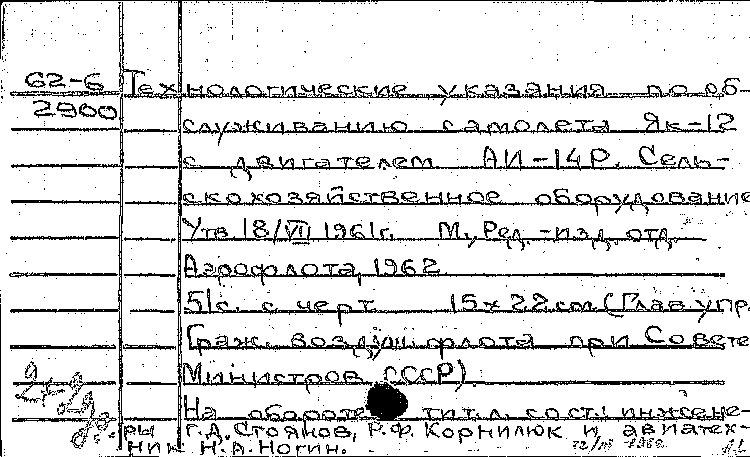 62-6 Технологические указания по об-
2900 служиванию самолета Як-12
с двигателем АИ-14Р. Сель-
скохозяйственное оборудование
Утв. 18/VII 1961г. М., Ред.-изд. отд.
Аэрофлота, 1962
51с. с черт. 15х22см. (Глав. упр.
Граж. воздуш. флота при Совете
Министров СССР).
На обороте тит. л. сост.: инжене-
ры Г.Д. Стоянов, Р.Ф. Корнилюк и авиатех-
ник Н.А. Ногин.